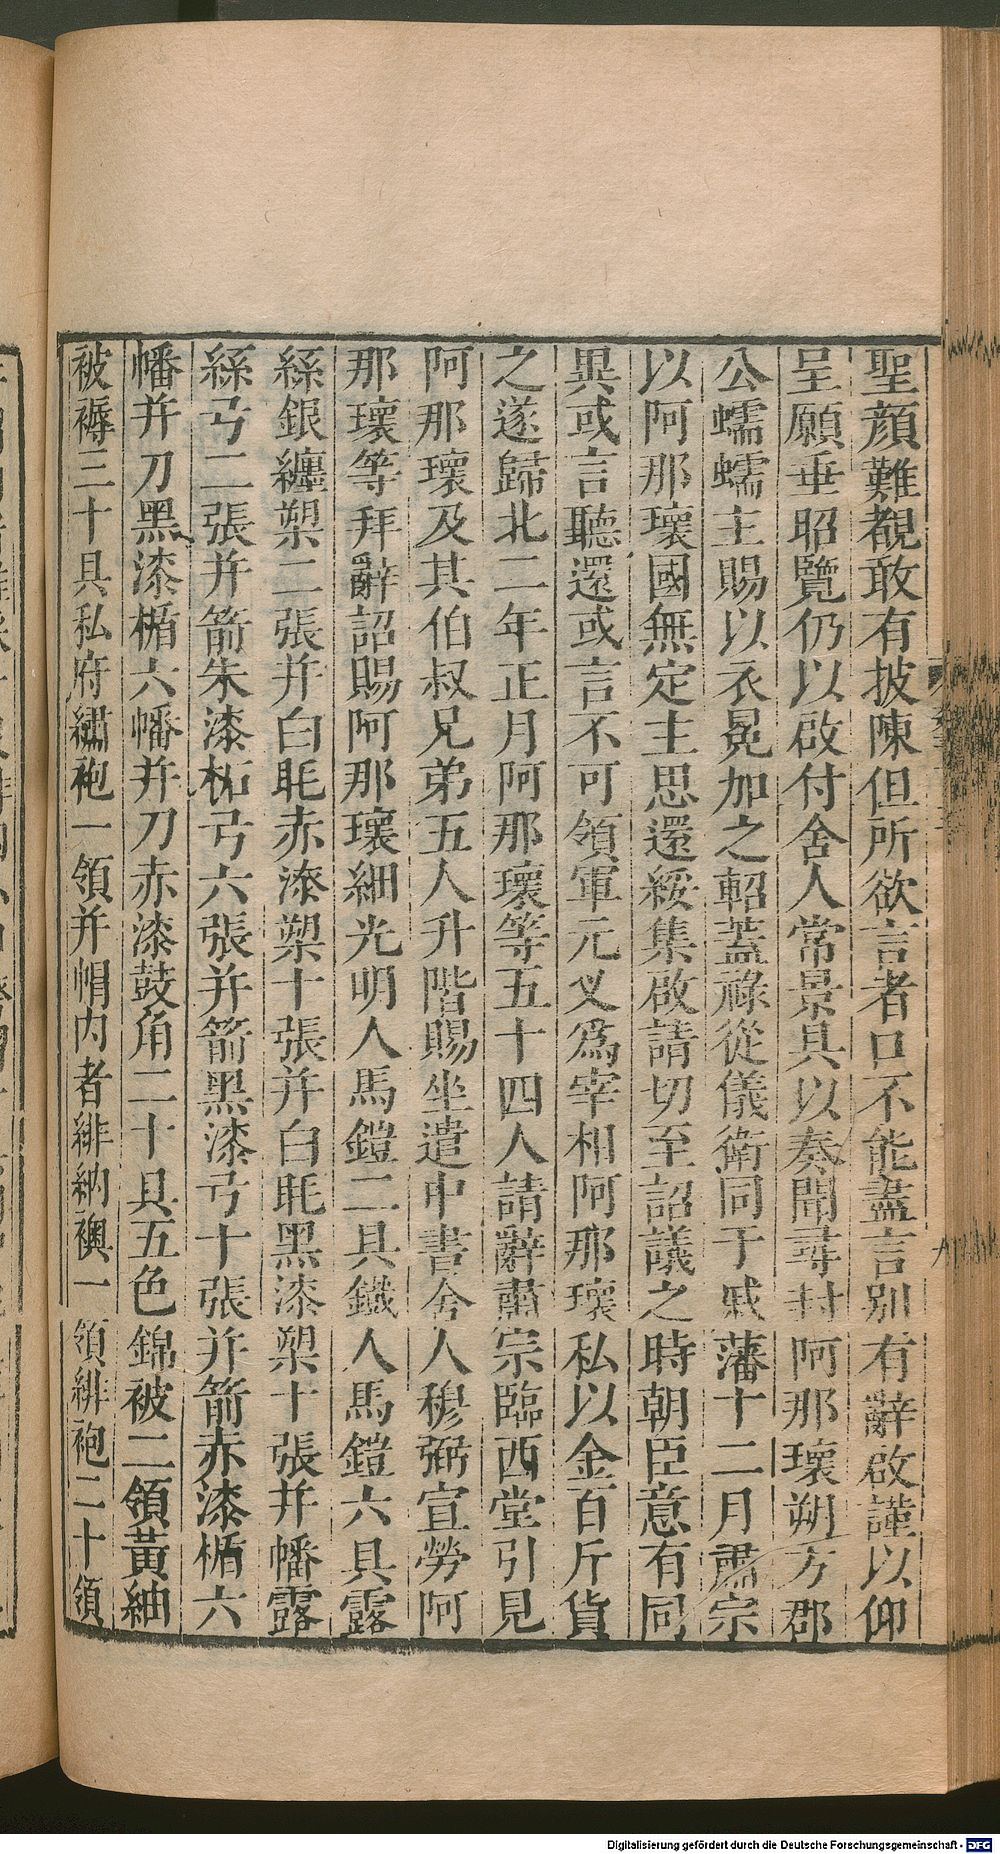 聖顏難覩敢有披陳但所欲言者口不能盡言別有辭啟謹以仰
呈願垂昭覽仍以啟付舍人常景具以奏聞尋封阿那瓌朔方郡
公蠕蠕主賜以衣冕加之軺蓋祿從儀衛同于戚藩十二月肅宗
以阿那瓌國無定主思還綏集啟請切至詔議之時朝臣意有同
異或言聽還或言不可領軍元叉爲宰相阿那瓌私以金百斤貨
之遂歸北二年正月阿那瓌等五十四人請辭肅宗臨西堂引見
阿那瓌及其伯叔兄弟五人升階賜坐遣中書舍人穆弼宣勞阿
那瓌等拜辭詔賜阿那瓌細光明人馬鎧二具鐵人馬鎧六具露
絲銀纏槊二張并白毦赤漆槊十張并白毦黑漆槊十張并幡露
絲弓二張并箭朱漆柘弓六張并箭黑漆弓十張并箭赤漆楯六
幡并刀黑漆楯六幡并刀赤漆鼓角二十具五色錦被二領黃紬
被褥三十具私府繡袍一領并帽內者緋納襖一領緋袍二十領
Digitalisierung gefördert durch die Deutsche Forschungsgemeinschaft - DFG